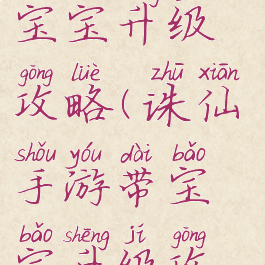 宝宝升级
gōng lüè zhū xiān
攻略(诛仙
shǒu yóu dài bǎo
手游带宝
bǎo shēng jí gōng
宝升级攻